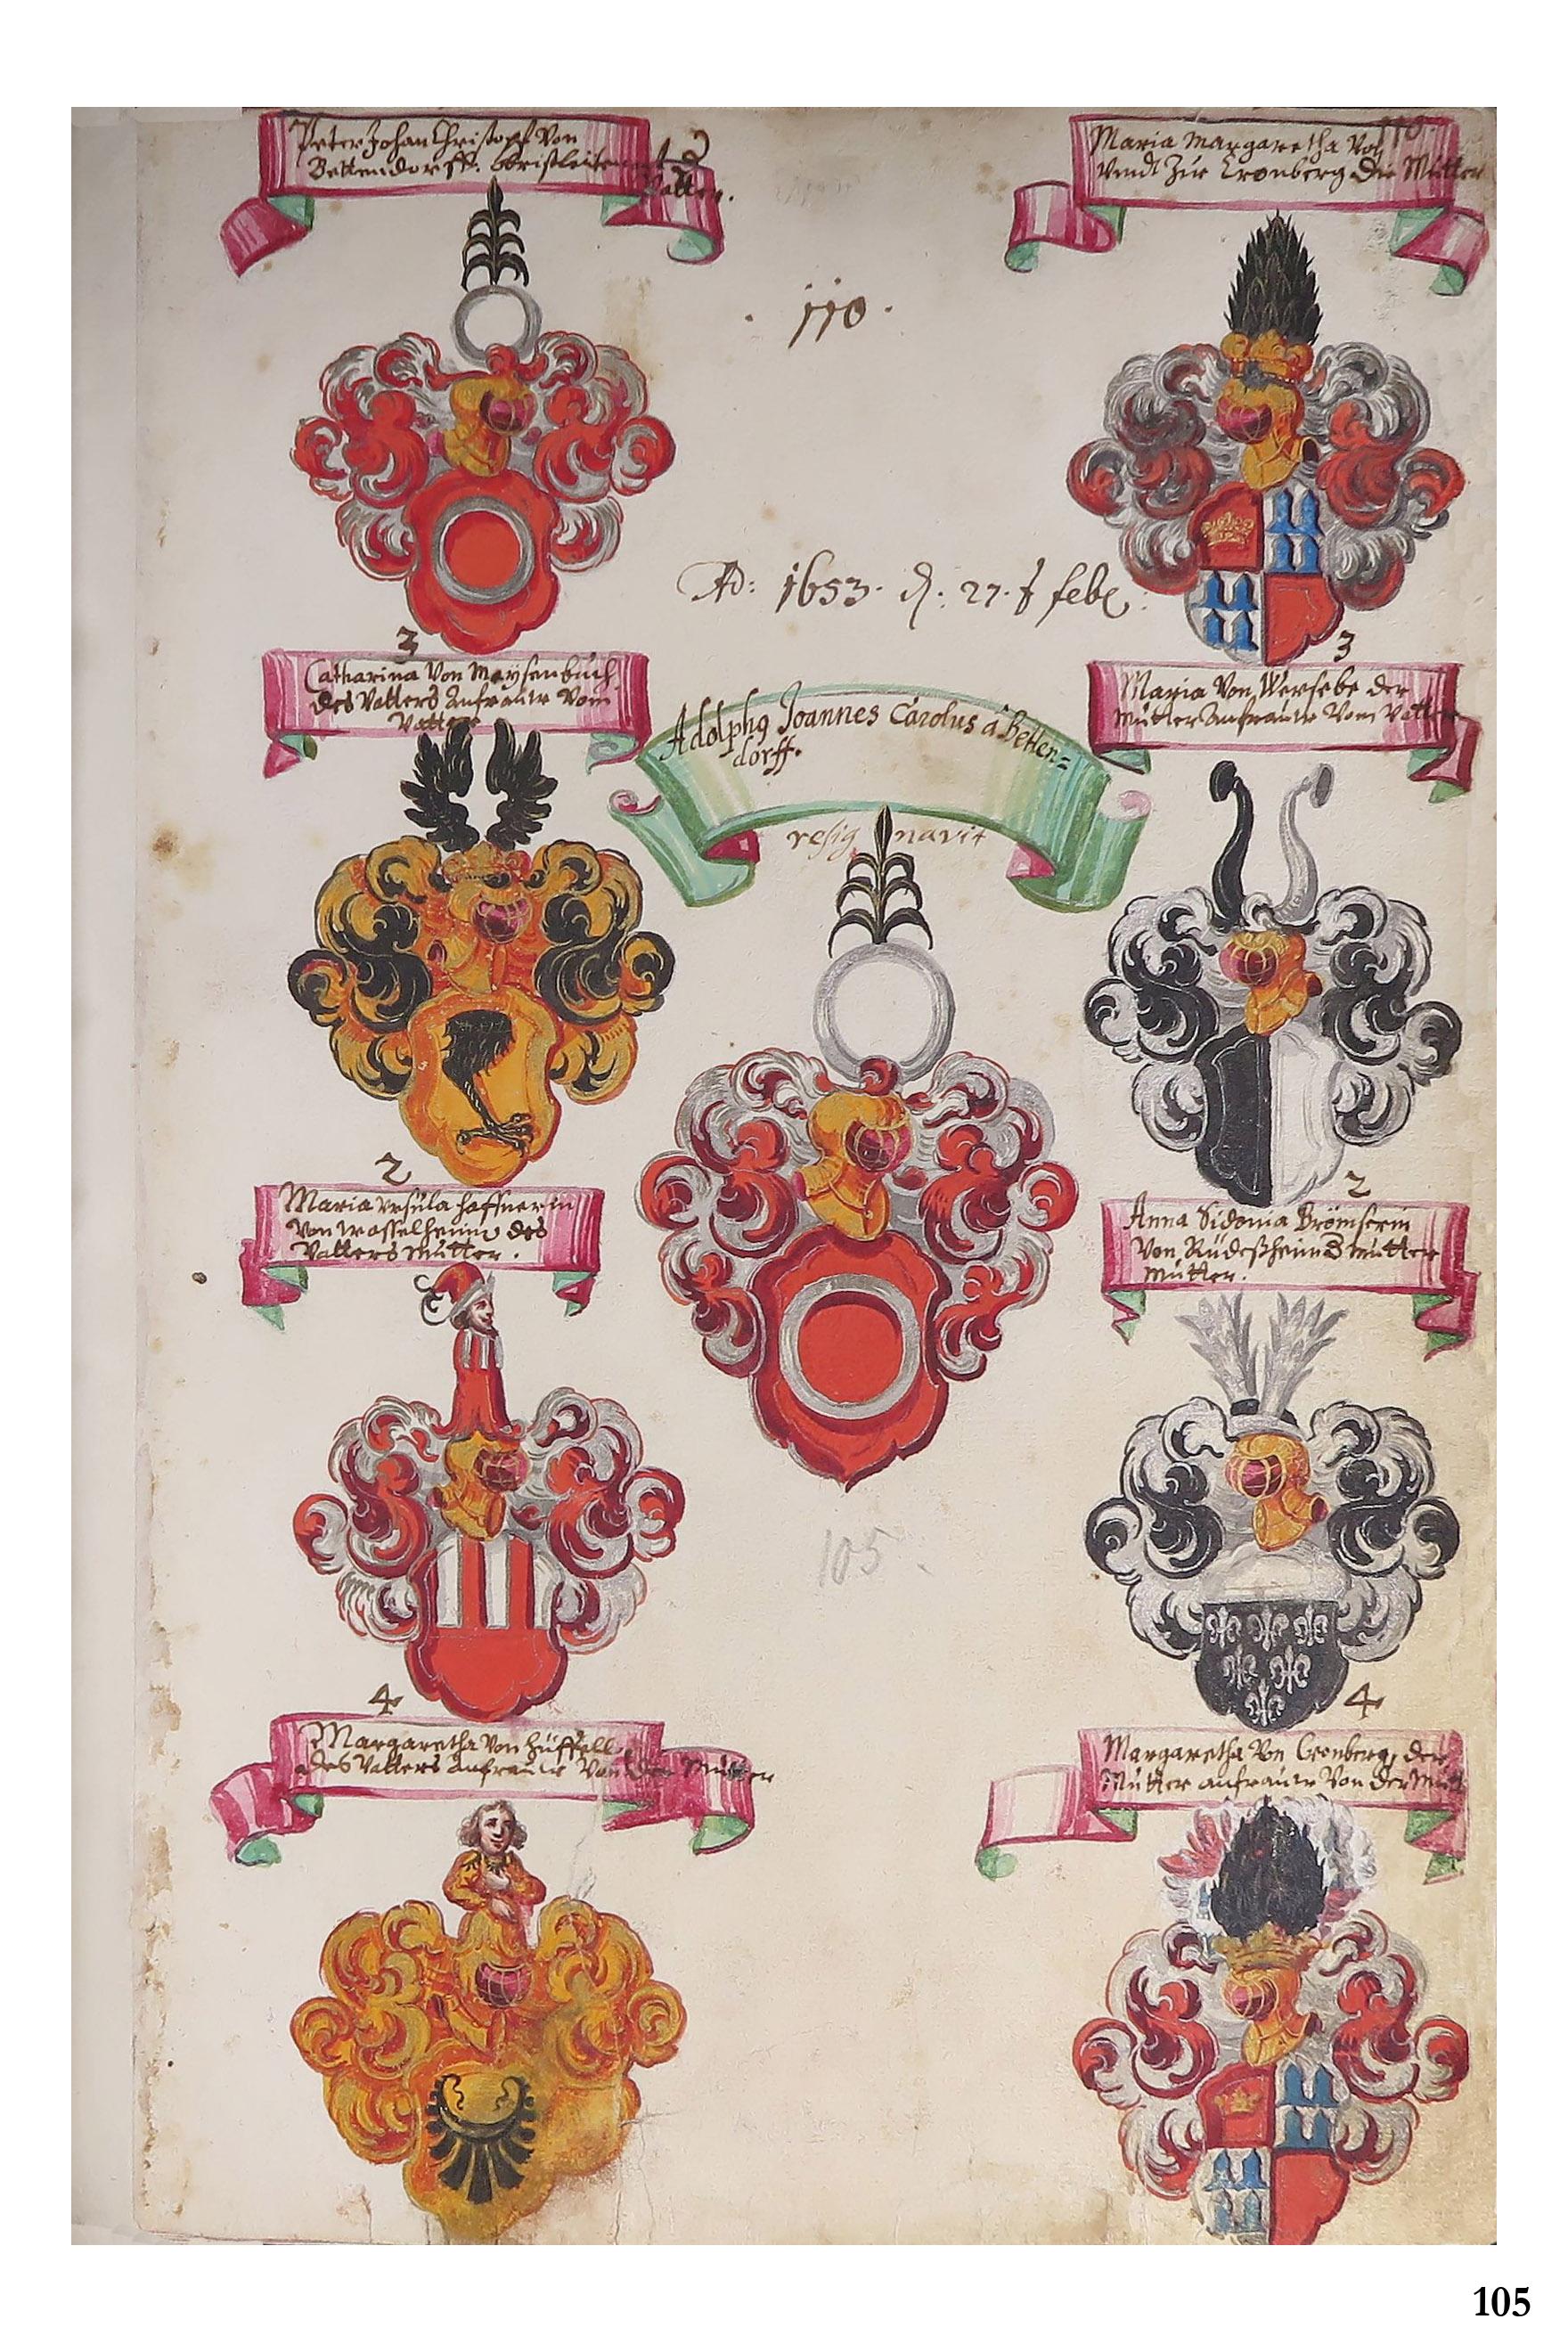 Peter Johan Christoph von
Bettendorff. obristleitenant d
Vatter.
110.
Maria Margaretha von
vndt Zür Cronberg die Mütter
. 110 .
Ao: 1653. d: 27. feb
3
Catharina von Meÿsenbüch
des Vatters Anfrauw vom
Vatter
3
Maria von Wersebe der
Mütter Anfrauw vom Vatter
Adolphg Joannes Carolus â Betten=
dorff.
resignavit
2
Maria vrsüla haffnerin
von wasselheimb des
Vatters Mütter.
2
Anna Sidonia Brömserin
von Rüdeßheim d mütter
Mütter.
105
4
Margaretha von hüffell
des Vatters anfrauw von der Mütter
4
Margaretha von Cronberg, der
Mütter anfrauw von der Mütt
105